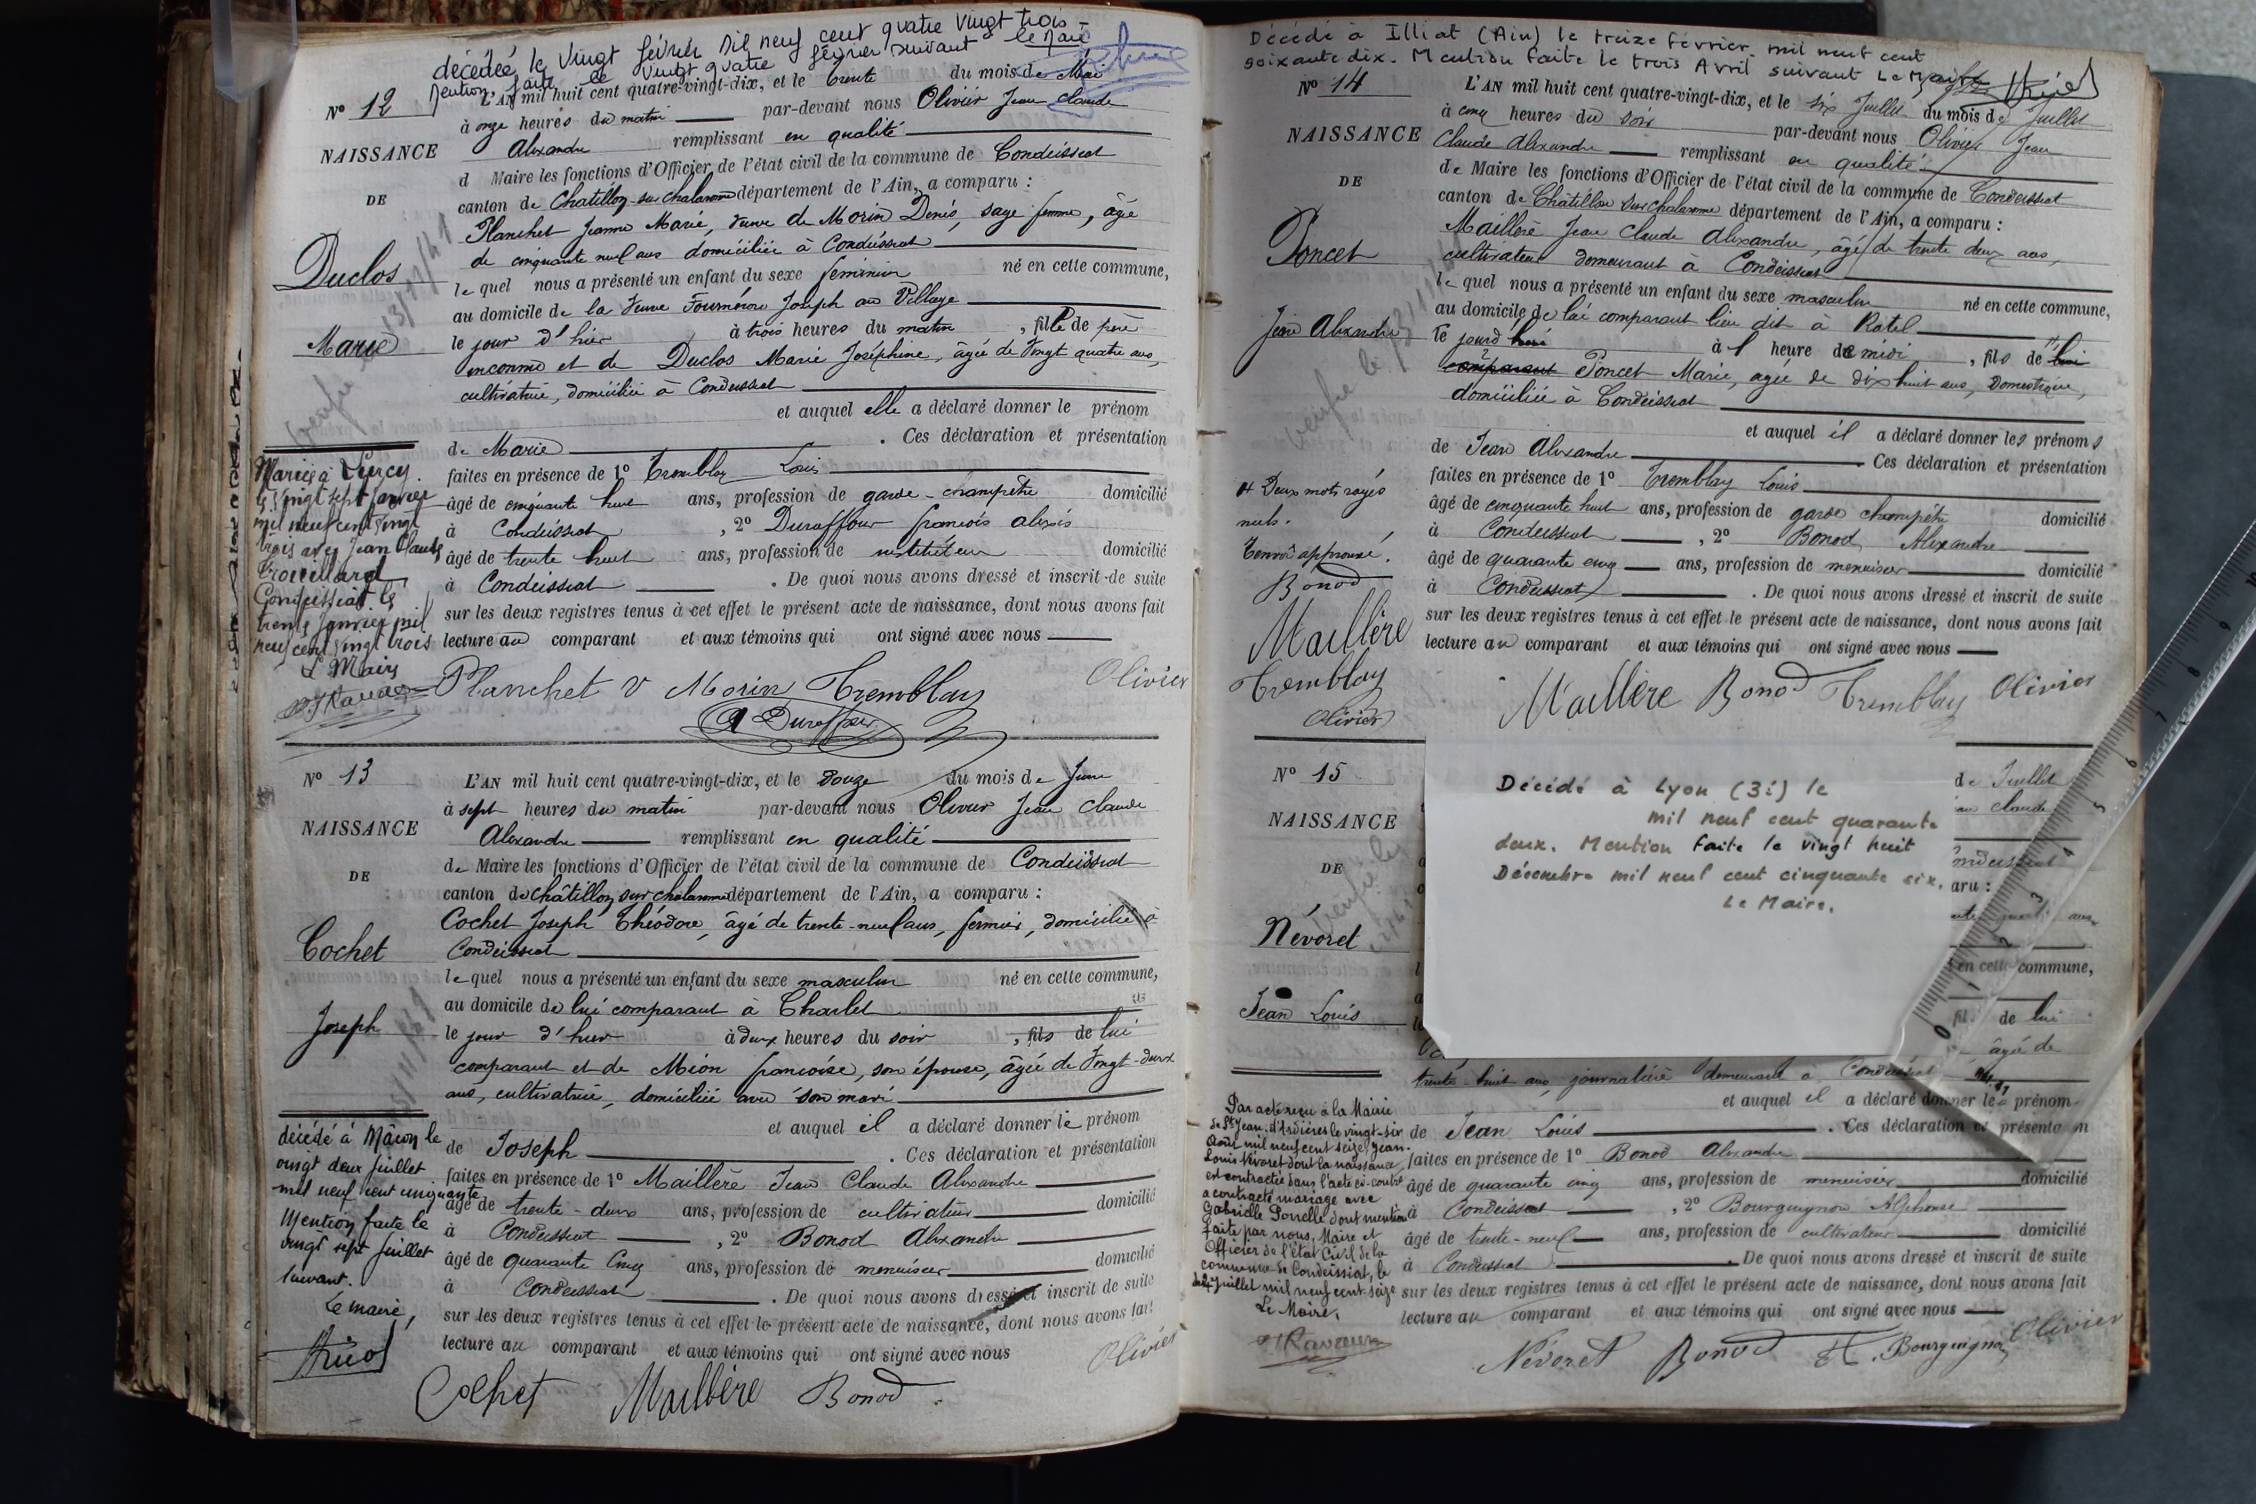 décédée le vingt février mil neuf cent quatre vingt trois
Mention faite le vingt quatre février suivant le Maire
N° 12
NAISSANCE
DE
Duclos
Marie
L'AN mil huit cent quatre-vingt-dix, et le trente du mois de Mai
à onze heures du matin par-devant nous Olivier Jean Claude
Alexandre remplissant en qualité
d Maire les fonctions d'Officier de l'état civil de la commune de Condeissiat
canton de Châtillon-sur-Chalaronne département de l'Ain, a comparu :
Planchet Jeanne Marie, veuve de Morin Denis, sage femme, âgé
de cinquante neuf ans domiciliée à Condeissiat
lequel nous a présenté un enfant du sexe féminin né en cette commune,
au domicile de la Veuve Joseph au Village
le jour d'hier à trois heures du matin, fille de père
inconnu et de Duclos Marie Joséphine, âgée de vingt quatre ans,
cultivatrice, domiciliée à Condeissiat
et auquel elle a déclaré donner le prénom
de Marie. Ces déclaration et présentation
faites en présence de 1° Tremblay Louis
âgé de cinquante huit ans, profession de garde-champêtre domicilié
à Condeissiat, 2° Duraffour françois alexis
âgé de trente huit ans, profession de instituteur domicilié
à Condeissiat. De quoi nous avons dressé et inscrit de suite
sur les deux registres tenus à cet effet le présent acte de naissance, dont nous avons fait
lecture au comparant et aux témoins qui ont signé avec nous
Mariée à Lurcy
le vingt sept janvier
mil neuf cent vingt
trois avec Jean Claude
Trouillard
Condeissiat le
trente janvier mil
neuf cent vingt trois
Le Maire
Planchet V Morin Tremblay Olivier
A Duraffour
N° 13
NAISSANCE
DE
Cochet
Joseph
L'AN mil huit cent quatre-vingt-dix, et le douze du mois de Juin
à sept heures du matin par-devant nous Olivier Jean Claude
Alexandre remplissant en qualité
de Maire les fonctions d'Officier de l'état civil de la commune de Condeissiat
canton de Châtillon sur Chalaronne département de l'Ain, a comparu :
Cochet Joseph Théodore, âgé de trente-neuf ans, fermier, domicilié à
Condeissiat
lequel nous a présenté un enfant du sexe masculin né en cette commune,
au domicile de lui comparant à Charlet
le jour d'hier à deux heures du soir, fils de lui
comparant et de Mion françoise, son épouse, âgée de vingt-deux
ans, cultivatrice, domiciliée avec son mari
et auquel il a déclaré donner le prénom
de Joseph. Ces déclaration et présentation
faites en présence de 1° Maillère Jean Claude Alexandre
âgé de trente-deux ans, profession de cultivateur domicilié
à Condeissiat, 2° Bonod Alexandre
âgé de quarante cinq ans, profession de menuisier domicilié
à Condeissiat. De quoi nous avons dressé et inscrit de suite
sur les deux registres tenus à cet effet le présent acte de naissance, dont nous avons fait
lecture au comparant et aux témoins qui ont signé avec nous
décédé à Mâcon le
vingt deux juillet
mil neuf cent cinquante
Mention faite le
vingt sept juillet
suivant.
Le maire,
Cochet Maillère Bonod Olivier
Décédé à Illiat (Ain) le treize février mil neuf cent
soixante dix. Mention faite le trois Avril suivant Le Maire
N° 14
NAISSANCE
DE
Poncet
Jean Alexandre
L'AN mil huit cent quatre-vingt-dix, et le six Juillet du mois de Juillet
à cinq heures du soir par-devant nous Olivier Jean
Claude Alexandre remplissant en qualité
de Maire les fonctions d'Officier de l'état civil de la commune de Condeissiat
canton de Châtillon sur Chalaronne département de l'Ain, a comparu :
Maillère Jean Claude Alexandre, âgé de trente deux ans,
cultivateur demeurant à Condeissiat
lequel nous a présenté un enfant du sexe masculin né en cette commune,
au domicile de lui comparant lieu dit à Ratel
le jourd'hui à 1 heure de midi, fils de lui
comparant Poncet Marie, agée de dix huit ans, Domestique,
domiciliée à Condeissiat
et auquel il a déclaré donner les prénoms
de Jean Alexandre Ces déclaration et présentation
faites en présence de 1° Tremblay Louis
âgé de cinquante huit ans, profession de garde champêtre domicilié
à Condeissiat, 2° Bonod Alexandre
âgé de quarante cinq ans, profession de menuisier domicilié
à Condeissiat. De quoi nous avons dressé et inscrit de suite
sur les deux registres tenus à cet effet le présent acte de naissance, dont nous avons fait
lecture au comparant et aux témoins qui ont signé avec nous
Deux mots rayés
nuls.
Renvoi approuvé.
Bonod
Maillère
Tremblay
Olivier
Maillère Bonod Tremblay Olivier
N° 15
NAISSANCE
DE
Névoret
Jean Louis
Décédé à Lyon (3i) le
mil neuf cent quarante
deux. Mention faite le vingt huit
Décembre mil neuf cent cinquante six.
Le Maire.
de Juillet
claude
aru :
en cette commune,
fil de lui
âgée de
trente-huit ans, journalière demeurant à Condeissiat
et auquel il a déclaré donner les prénom
de Jean Louis. Ces déclaration et présentation
faites en présence de 1° Bonod Alexandre
âgé de quarante cinq ans, profession de menuisier domicilié
à Condeissiat, 2° Bourguignon Alphonse
âgé de trente-neuf ans, profession de cultivateur domicilié
à Condeissiat. De quoi nous avons dressé et inscrit de suite
sur les deux registres tenus à cet effet le présent acte de naissance, dont nous avons fait
lecture au comparant et aux témoins qui ont signé avec nous
Par acte reçu à la Mairie
de St Jean d'Ardières le vingt-six
Août mil neuf cent seize, Jean-
Louis Névoret dont la naissance
est contractée dans l'acte ci-contre
a contracté mariage avec
Gabrielle dont mention
faite par nous, Maire et
Officier de l'État Civil de la
commune de Condeissiat, le
Juillet mil neuf cent seize
Le Maire,
Névoret Bonod A. Bourguignon Olivier